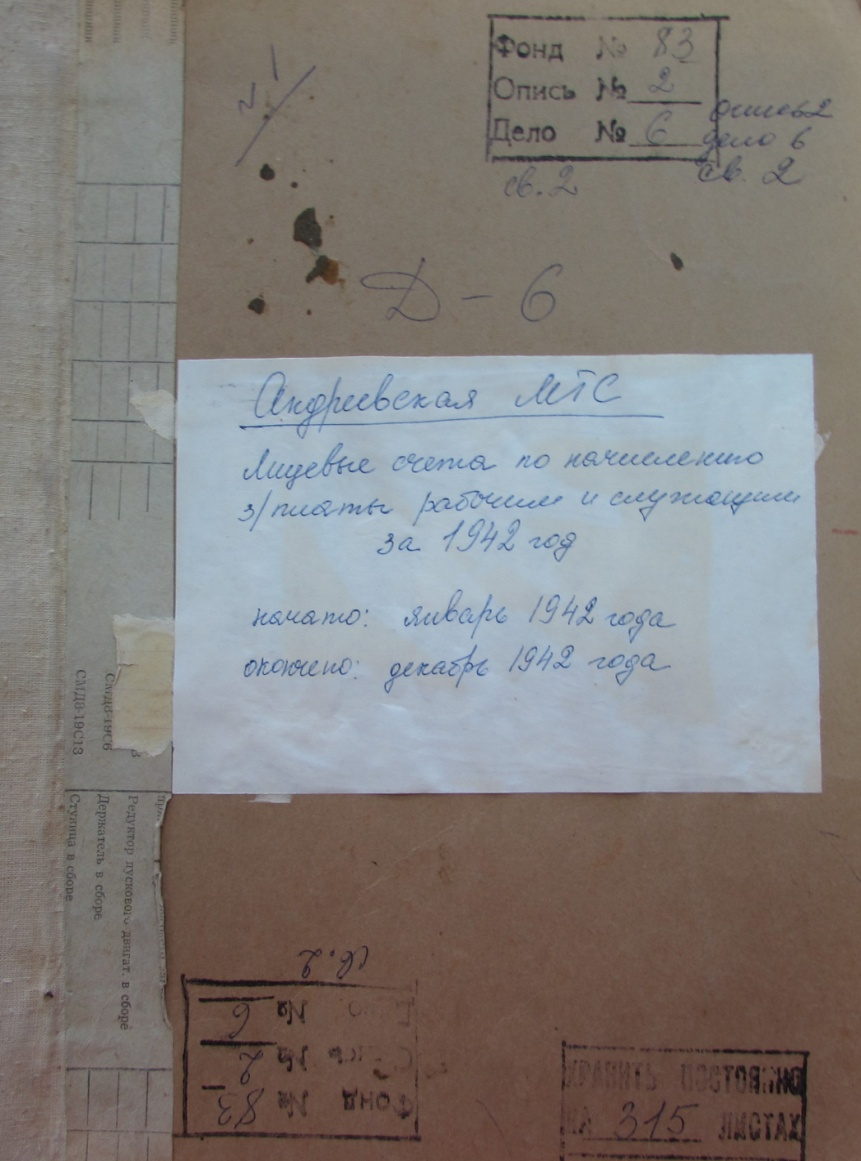 Фонд № 83
Опись № 2
Дело № 6
опись 2
дело 6
св. 2
св. 2
Д - 6
Андреевская МТС
Лицевые счета по начислению
з/платы рабочим и служащим
за 1942 год
начато: январь 1942 года
окончено: декабрь 1942 года
СМД8-19С6
СМД8-19С13
Редуктор пускового двигат. в сборе
Держатель в сборе
Ступица в сборе
св. 2
Фонд № 83
Опись № 2
Дело № 6
ХРАНИТЬ ПОСТОЯННО
НА 315 ЛИСТАХ